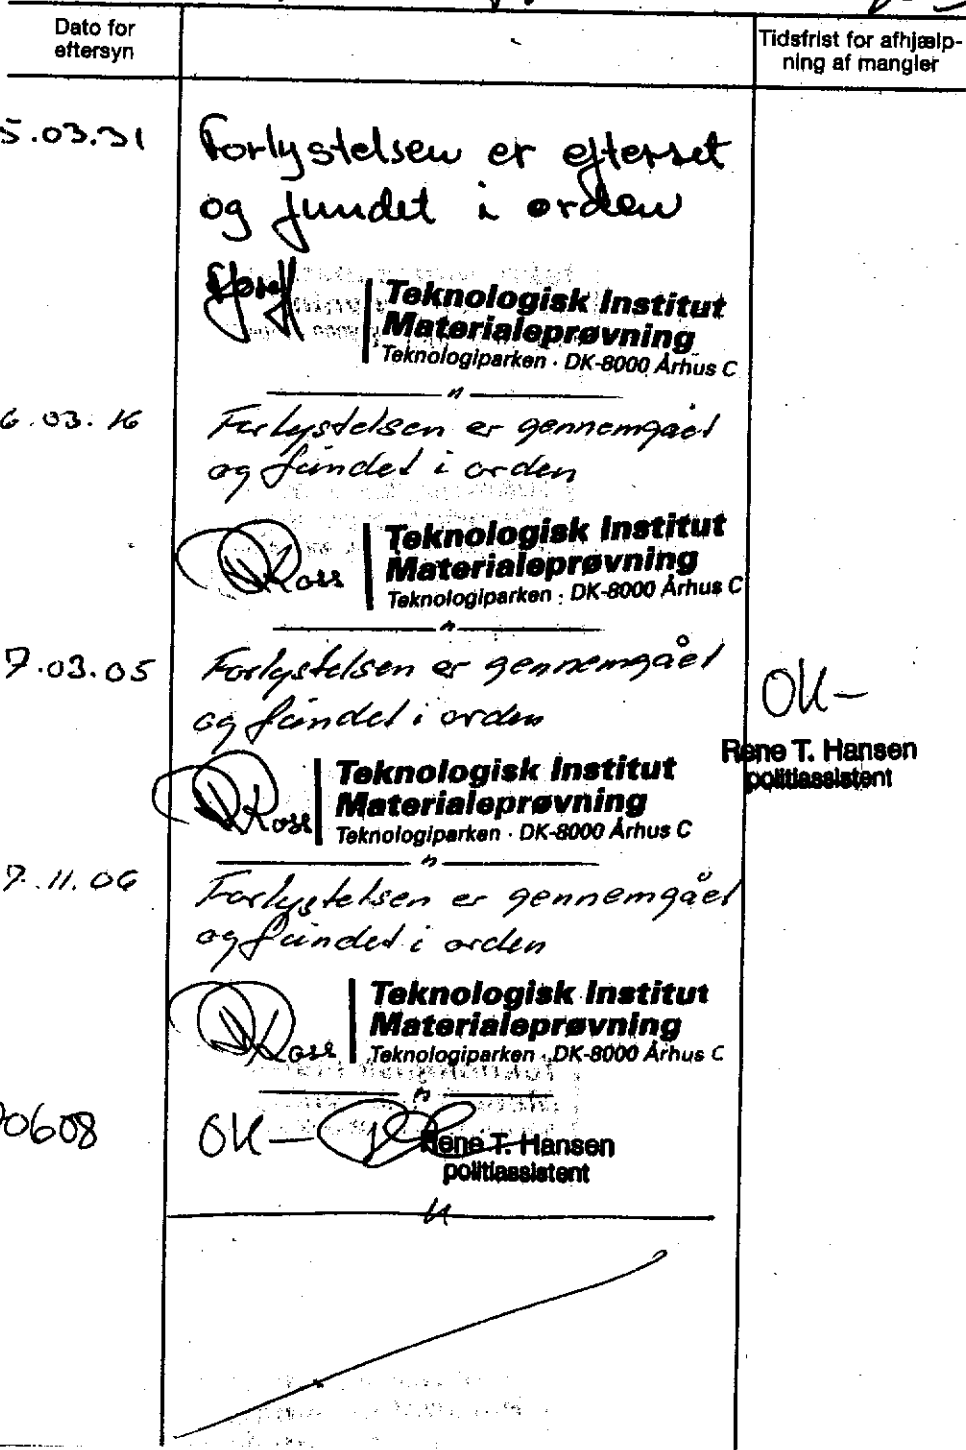 Dato for
eftersyn
Tidsfrist for afhjælp-
ning af mangler
5.03.31
Forlystelsen er efterset
og fundet i orden
Teknologisk Institut
Materialeprøvning
Teknologiparken · DK-8000 Århus C
6.03.16
Forlystelsen er gennemgået
og fundet i orden
Koss
Teknologisk Institut
Materialeprøvning
Teknologiparken · DK-8000 Århus C
7.03.05
Forlystelsen er gennemgået
og fundet i orden
OK-
Rene T. Hansen
politiassistent
Koss
Teknologisk Institut
Materialeprøvning
Teknologiparken · DK-8000 Århus C
7.11.06
Forlystelsen er gennemgået
og fundet i orden
Koss
Teknologisk Institut
Materialeprøvning
Teknologiparken · DK-8000 Århus C
0608
OK-
Rene T. Hansen
politiassistent